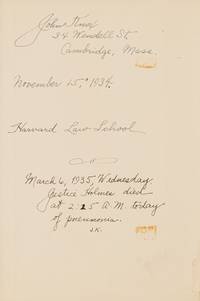 John Knox
34 Wendell St
Cambridge, Mass.
November 15, 1934.
Harvard Law School
March 6, 1935, Wednesday
Justice Holmes died
at 2:15 A.M. today
of pneumonia.
J.K.